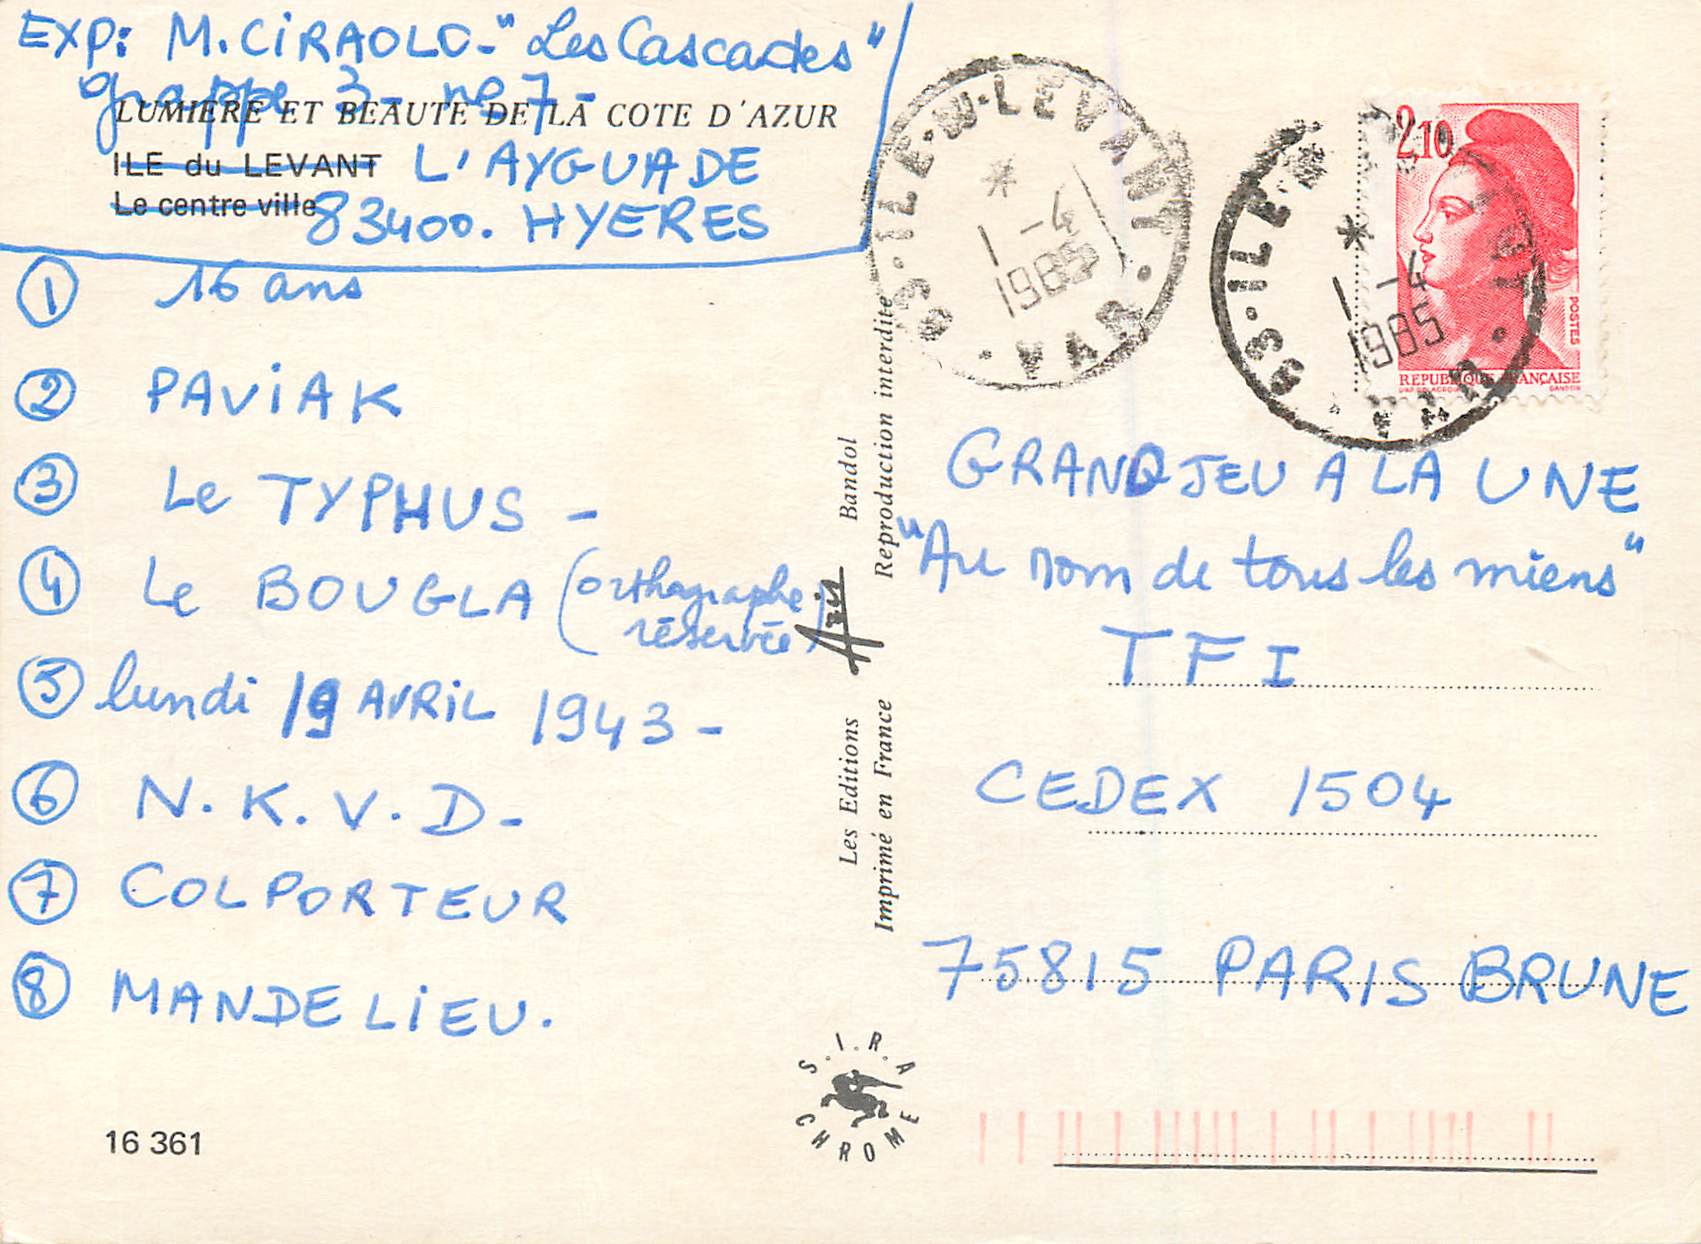 EXP: M. CIRAOLO - "Les Cascades"
grappe 3 - no 7 -
LUMIERE ET BEAUTE DE LA COTE D'AZUR
ILE du LEVANT
L'AYGUADE
Le centre ville
83400. HYERES
① 16 ans
② PAVIAK
③ Le TYPHUS -
④ Le BOUGLA (orthographe
réservée)
⑤ lundi 19 AVRIL 1943 -
⑥ N.K.V.D -
⑦ COLPORTEUR
⑧ MANDELIEU.
16 361
Les Editions Aris Bandol
Imprimé en France Reproduction interdite
S.I.R.A
CHROME
83 · ILE-DU-LEVANT
* 1-4
1985
· VAR ·
83 · ILE
* 1-4
1985
VAR
2,10
POSTES
REPUBLIQUE FRANÇAISE
GANDON
GRAND JEU A LA UNE
"Au nom de tous les miens"
TFI
CEDEX 1504
75815 PARIS BRUNE